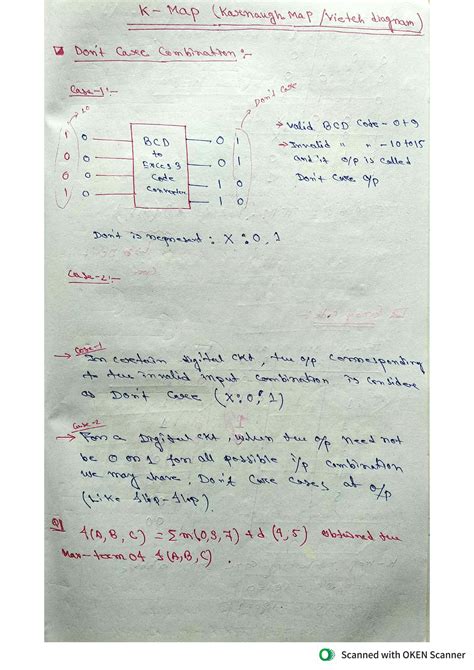 K-Map (Karnaugh Map / Vietch diagram)
Don't Care Combination:-
Case-1:-
10
Don't Care
1 0
0 0
0 0
1 0
BCD
to
Excess 3
Code
Converter
0 1
0 1
1 0
1 0
→ Valid BCD Code - 0 to 9
→ Invalid " " - 10 to 15
and it o/p is called
Don't Care o/p
Don't is represent : X : 0, 1
Case-2:-
Case-1
→ In certain digital ckt, the o/p corresponding
to the invalid input combination is considere
as Don't Care (X : 0, 1)
Case-2
→ For a Digital ckt, when the o/p need not
be 0 or 1 for all possible i/p combination
we may have, Don't Care cases at o/p
(Like flip-flop).
Q1 f(A,B,C) = Σm(0,3,7) + d(4,5) obtained the
Max-term of f(A,B,C).
Scanned with OKEN Scanner